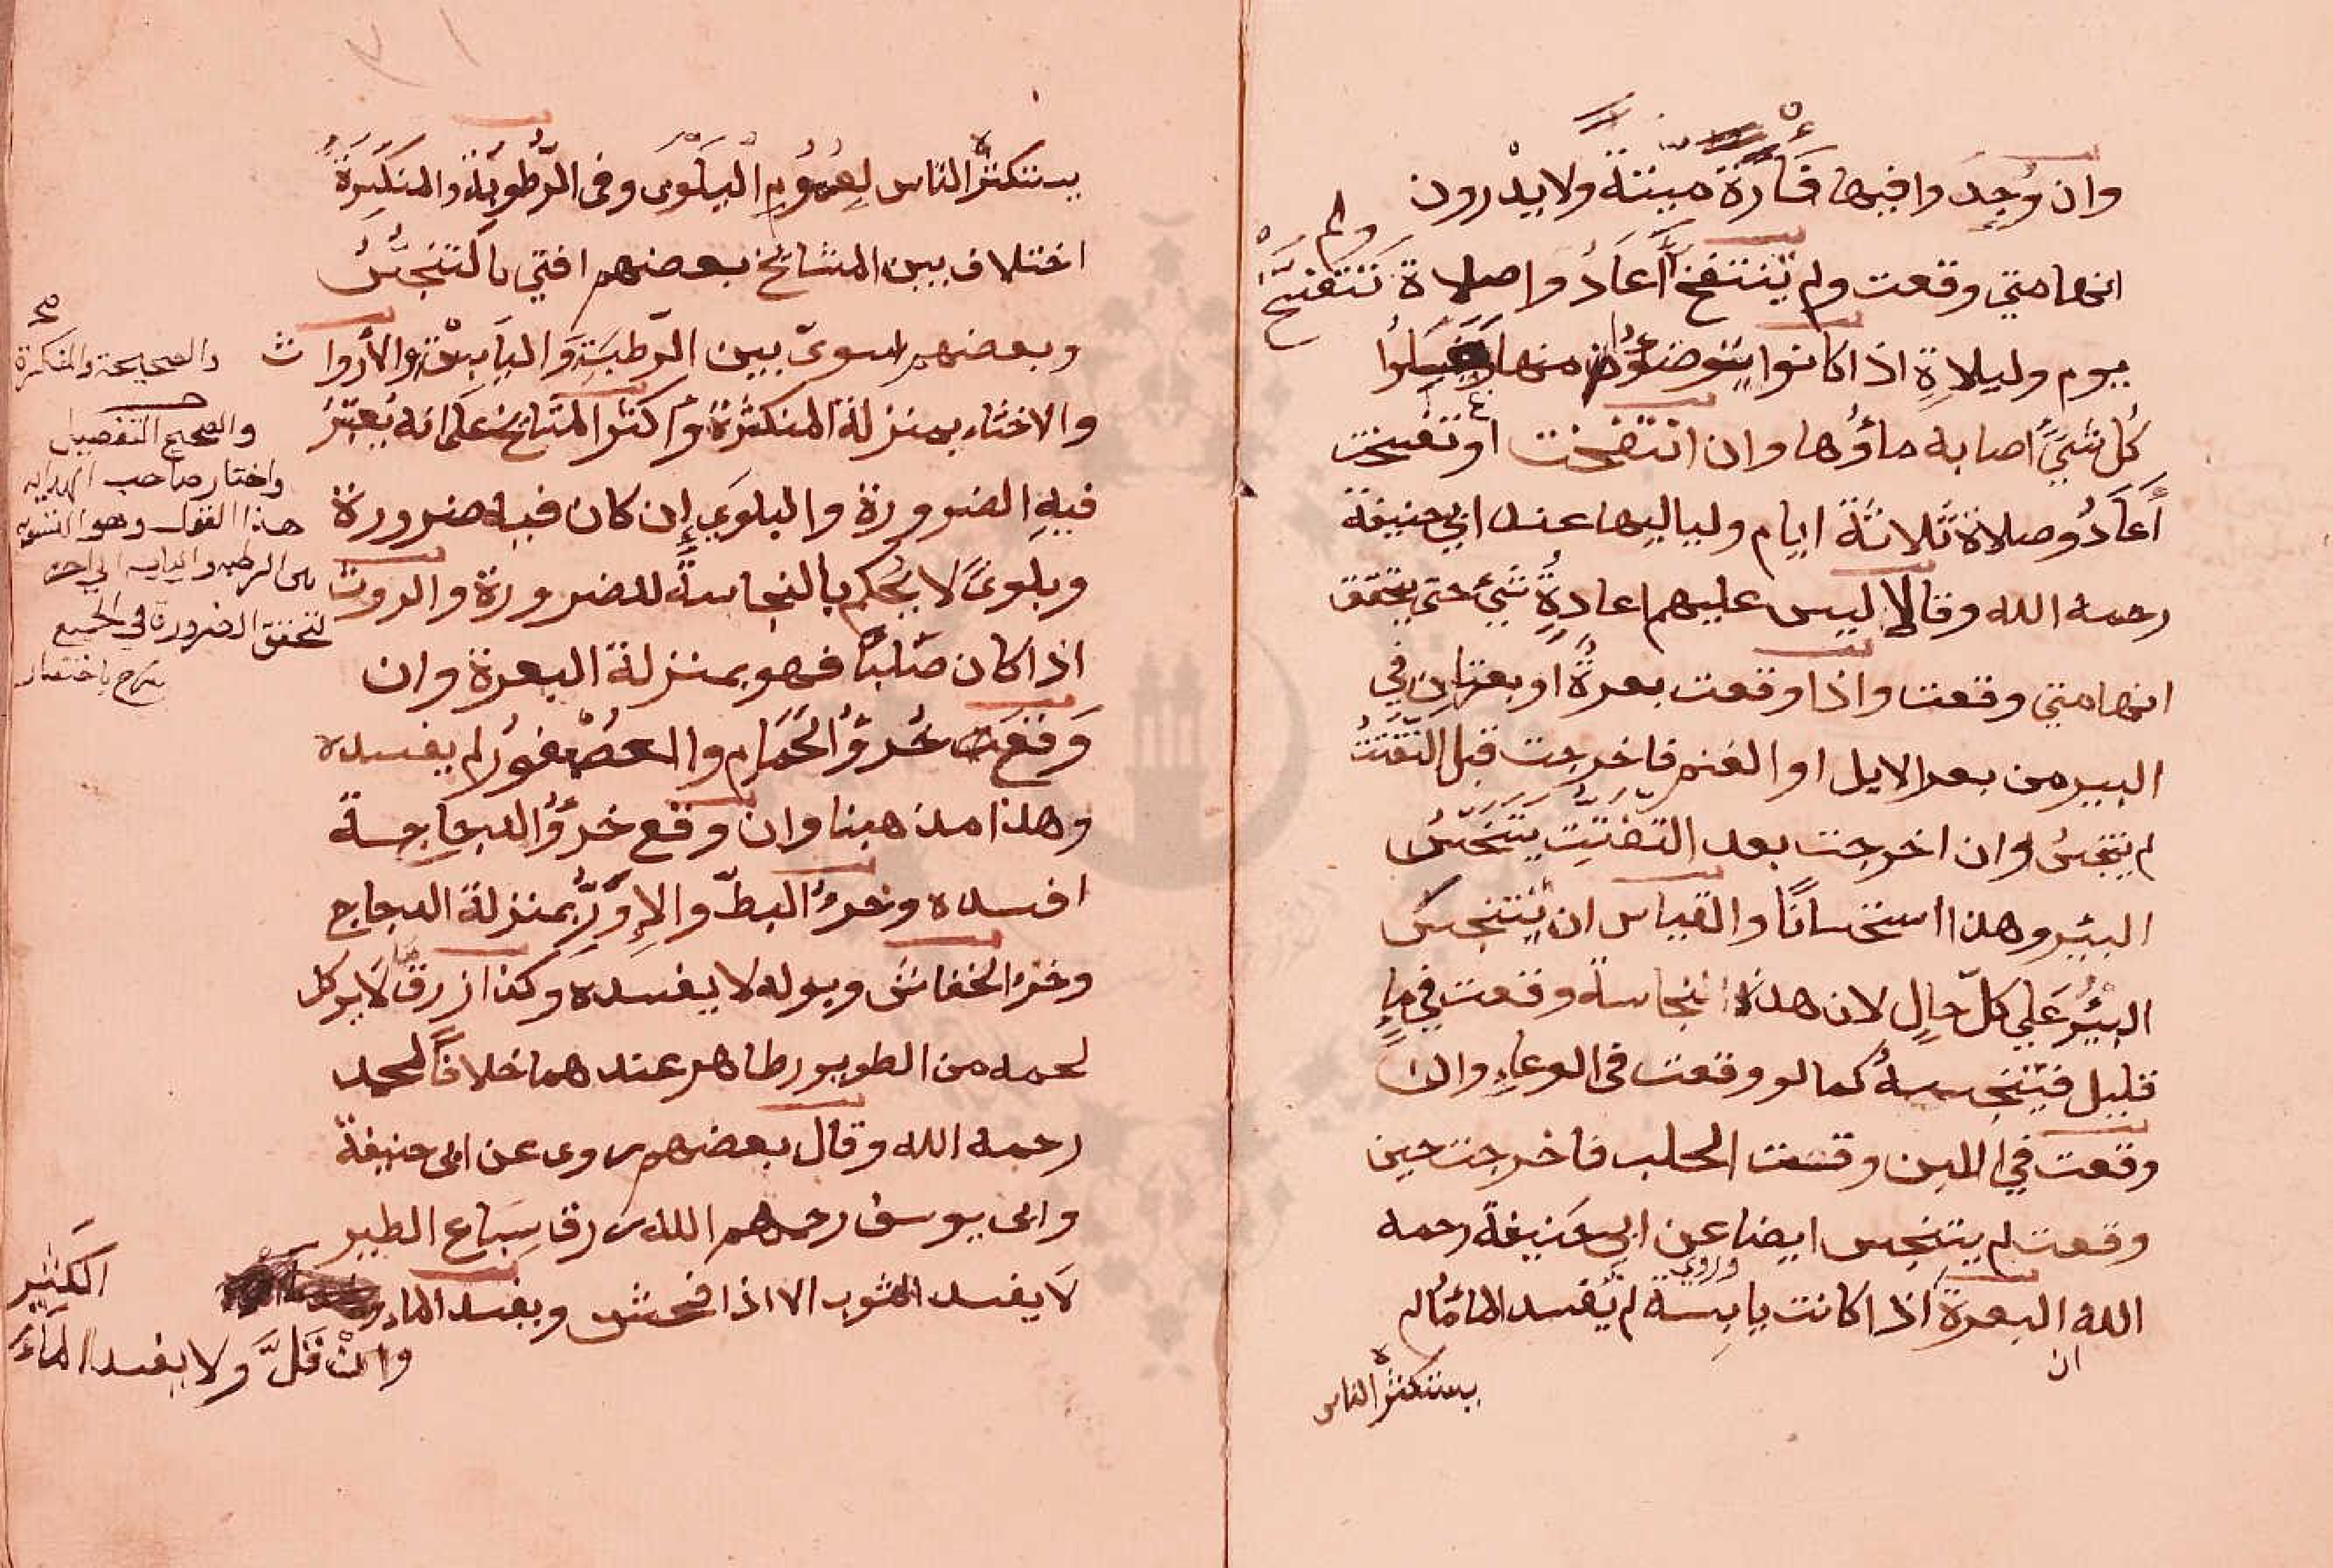 وان وُجِدَ وافيها فَارَةً ميتة ولا يدْرون
انها متي وقعت ولم تنتفخ أَعَادُوا صلاة
ولم تتفسخ
يوم وليلاةٍ اذا كانوا يتوضئون منها وغسلوا
كُل شَيءً اصابه ماؤُها وان انتفخت او تفسخت
أَعَادُو صلاة ثلاثَةً ايام ولياليها عند ابي حنيفة
رحمه الله وقالا ليس عليهم اعادةُ شيء حتي يتحقق
انها متي وقعت واذا وقعت بعرةٌ او بعرتان في
البير من بعر الابل او الغنم فاخرجت قبل التّفَتُتُ
لم يتنجس وان اخرجت بعد التّفَتّتِ يَتَنَجّسُ
البئر وهذا استحسانًا والقياس ان يتنجس
البئرُ عَلي كلّ حالٍ لان هذه النجاسة وقعت في ماءٍ
قليل فيتنجسهُ كما لو وقعت في الوعاءِ وان
وقعت في اللبن وقت الحلب فاخرجت حين
وقعت لم يتنجس ايضا عن ابي حَنيفة رحمه
وروي
الله البعرةَ اذا كانت يابِسةً لم يُفسد الماءُ مالم
ان
يستكثره الناس
يستكثره الناس لِعُمُوْمِ البَلْوَى وفي الرَّطُوْبَة والمنكَسِرَةُ
اختلاف بين المشائخ بعضهم افتي بالتنجسُ
وبعضهم سوىّ بين الرَطبَةِ وَاليَابسْة والأرواث
والاخثاء بمنزلة المنكسْرة واكثر المشائخ علي انه يُعتبرُ
فيهِ الضرورة والبلوَي إِن كان فيه ضرورة
وبلوىً لا يُحكم بالنجاسَة للضرورة والروث
اذا كان صَلبًا فهو بمنزلة البعرة وان
وَقَعَتْ خُرؤُ الحَمَامِ والعصْفورُ لم يفسده
وهذا مذهبنا وان وقع خَرؤُ الدجاجةً
افسده وخرءُ البطّ والإوَزُّ بمنزلة الدجاج
وخرءُ الخفاش وبوله لا يفسده وكذا زرق مَا لا يوكل
لحمه من الطيور طاهر عندهما خلافًا لمحمد
رحمه الله وقال بعضهم روى عن ابى حنيفة
وابى يوسف رحمهم الله زرق سِبَاع الطير
لَا يفسد الثوب الا اذا فحش ويفسد الماء
وانْ قَلَّ ولا يفسد المَاءُ
الكثير
والصحيحة والمنكسرة
والصحيح التفصيل
واختار صاحب الهدايه
هذا القول وهو التسويه
بين الرطبه واليابسه الي اخره
لتحقق الضرورة في الجميع
شرح باختصار